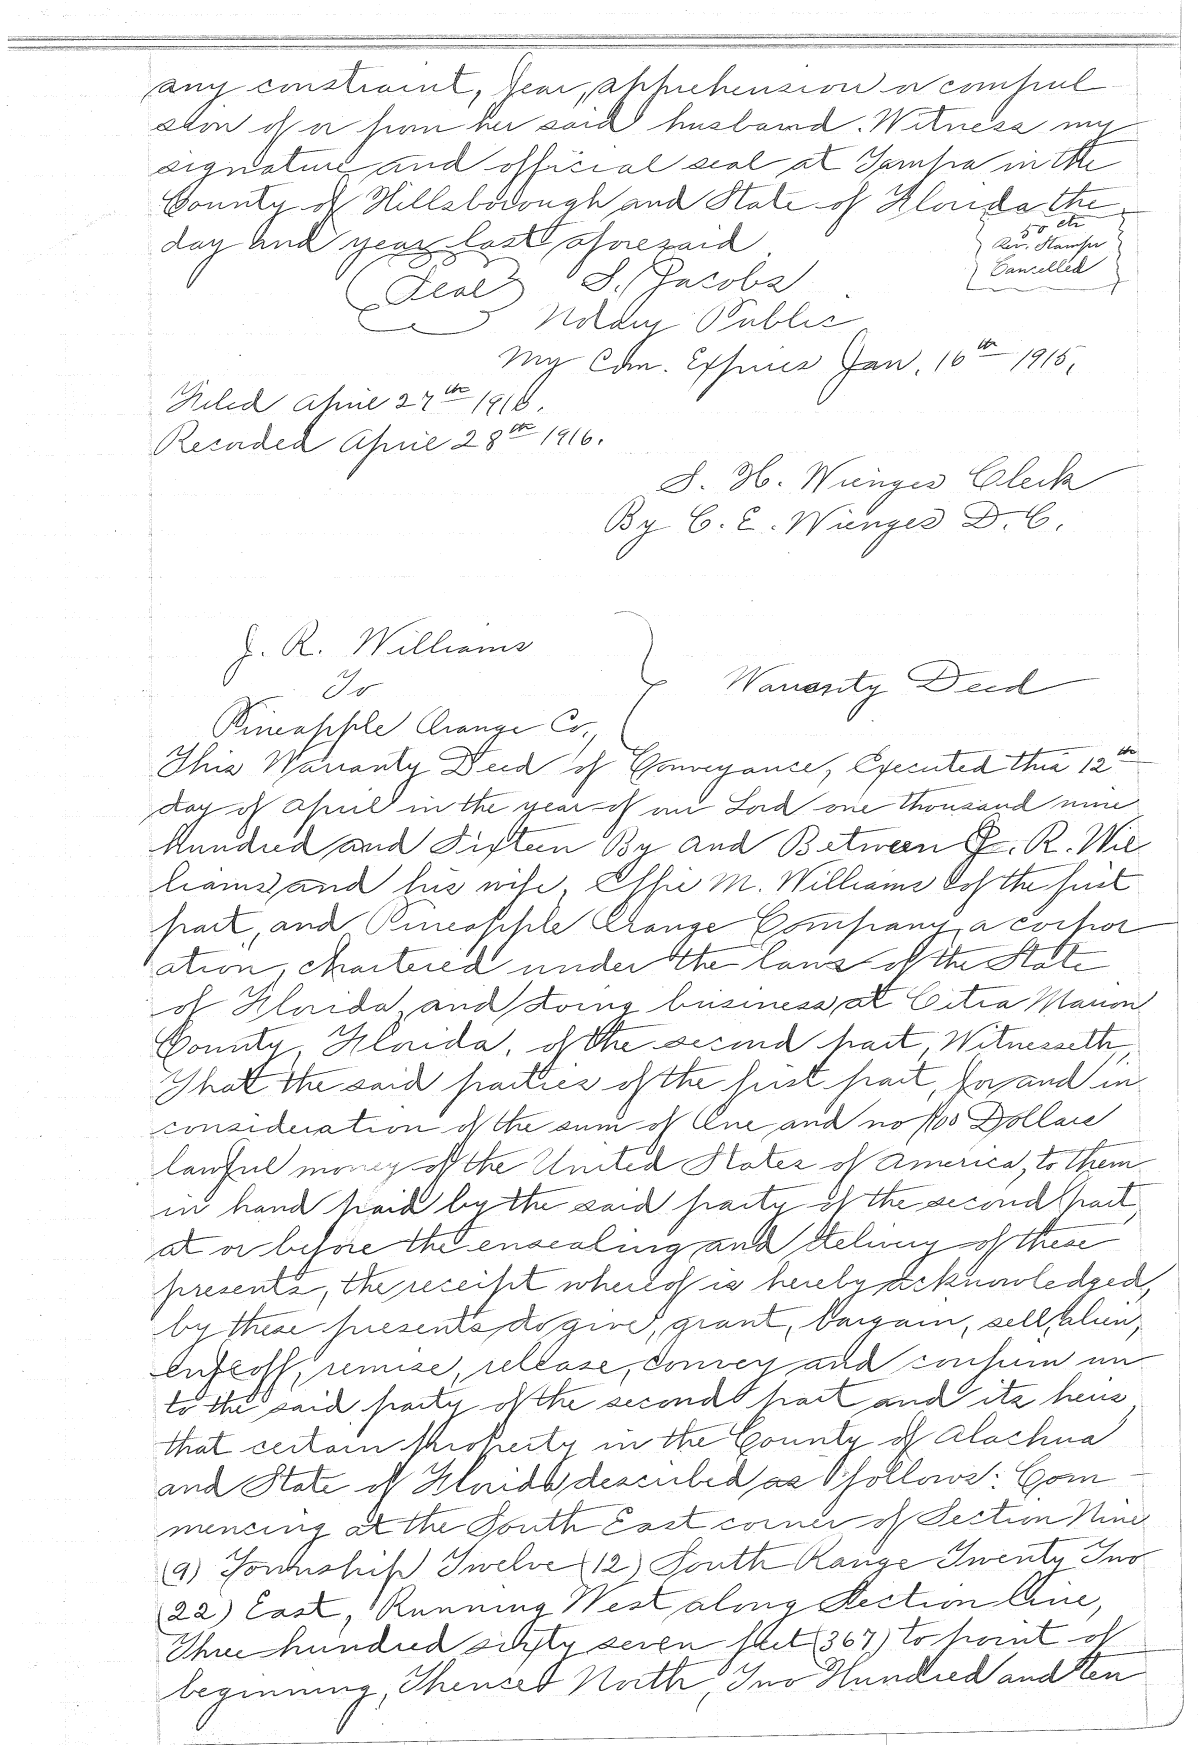 any constraint, fear, apprehension or compul
sion of or from her said husband. Witness my
signature and official seal at Tampa in the
County of Hillsborough and State of Florida the
day and year last aforesaid
50 cts
Rev. Stamps
Cancelled
(Seal) S. Jacobs
Notary Public
My Com. Expires Jan. 16th 1915,
Filed April 27th 1916.
Recorded April 28th 1916.
S. H. Wienges Clerk
By C. E. Wienges D. C.
J. R. Williams
To
Pineapple Orange Co.,
Warranty Deed
This Warranty Deed of Conveyance, Executed this 12th
day of April in the year of our Lord one thousand nine
hundred and Sixteen By and Between J. R. Wil
liams and his wife, Effie M. Williams of the first
part, and Pineapple Orange Company, a corpor
ation, chartered under the laws of the State
of Florida, and doing business at Citra Marion
County, Florida, of the second part, Witnesseth,
That the said parties of the first part, for and in
consideration of the sum of One and no/100 Dollars
lawful money of the United States of America, to them
in hand paid by the said party of the second part,
at or before the ensealing and delivery of these
presents, the receipt whereof is hereby acknowledged,
by these presents do give, grant, bargain, sell, alien,
enfeoff, remise, release, convey and confirm un
to the said party of the second part and its heirs
that certain property in the County of Alachua
and State of Florida described as follows: Com
mencing at the South East corner of Section Nine
(9) Township Twelve (12) South Range Twenty Two
(22) East, Running West along Section line,
Three hundred sixty seven feet (367) to point of
beginning, Thence North, Two Hundred and ten